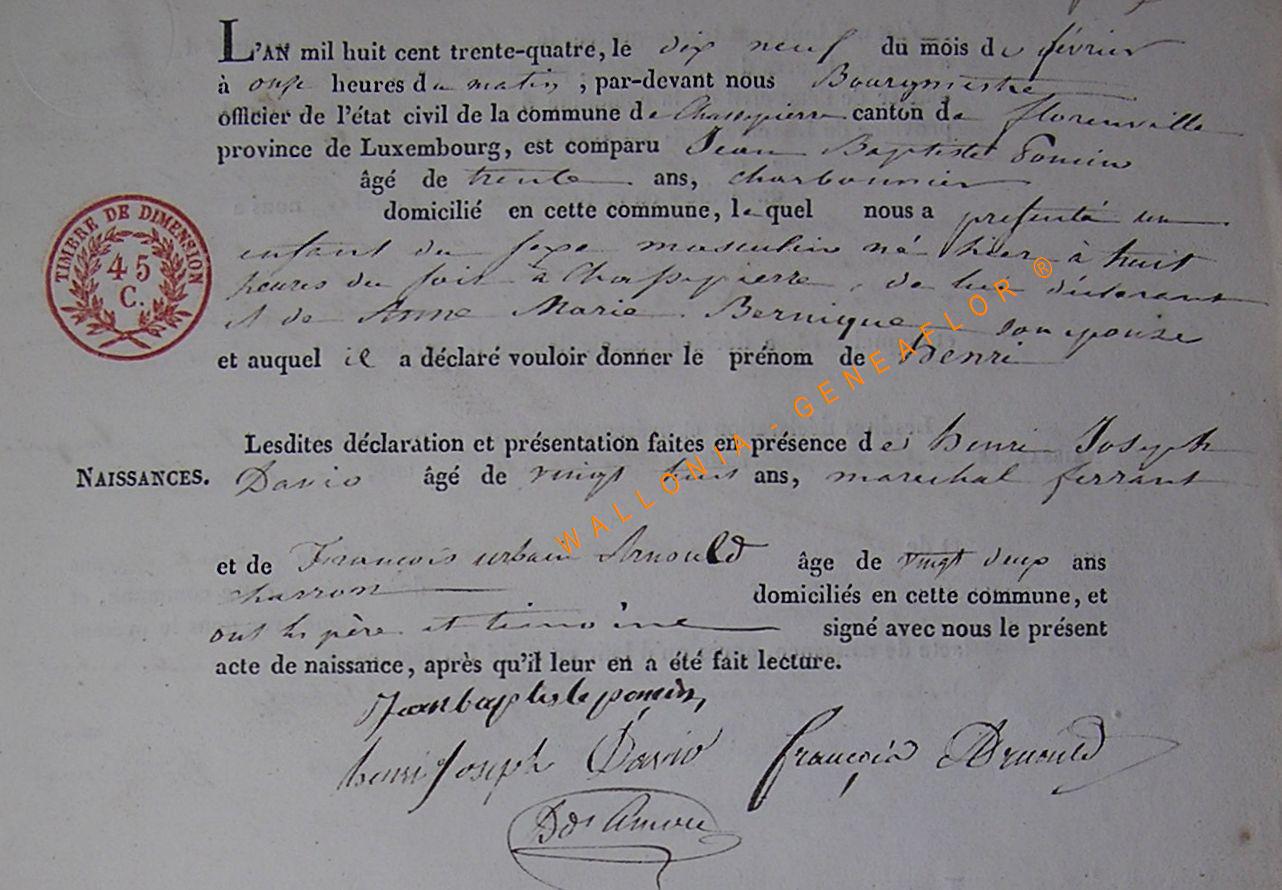 L'AN mil huit cent trente-quatre, le dix neuf du mois de février
à onze heures du matin, par-devant nous Bourgmestre
officier de l'état civil de la commune de Chassepierre canton de florenville
province de Luxembourg, est comparu Jean Baptiste Poncin
âgé de trente ans, charbonnier
domicilié en cette commune, lequel nous a présenté un
enfant du sexe masculin né hier à huit
heures du soir à Chassepierre, de lui déclarant
et de Anne Marie Bernique son épouse
et auquel il a déclaré vouloir donner le prénom de henri
Lesdites déclaration et présentation faites en présence de henri Joseph
NAISSANCES. David âgé de vingt huit ans, marechal ferrant
et de François urbain Arnould âge de vingt deux ans
charron domiciliés en cette commune, et
ont les père et témoins signé avec nous le présent
acte de naissance, après qu'il leur en a été fait lecture.
Jean baptiste poncin
henri Joseph David françois Arnould
TIMBRE DE DIMENSION
45
C.
WALLONIA - GENEAFLOR ®